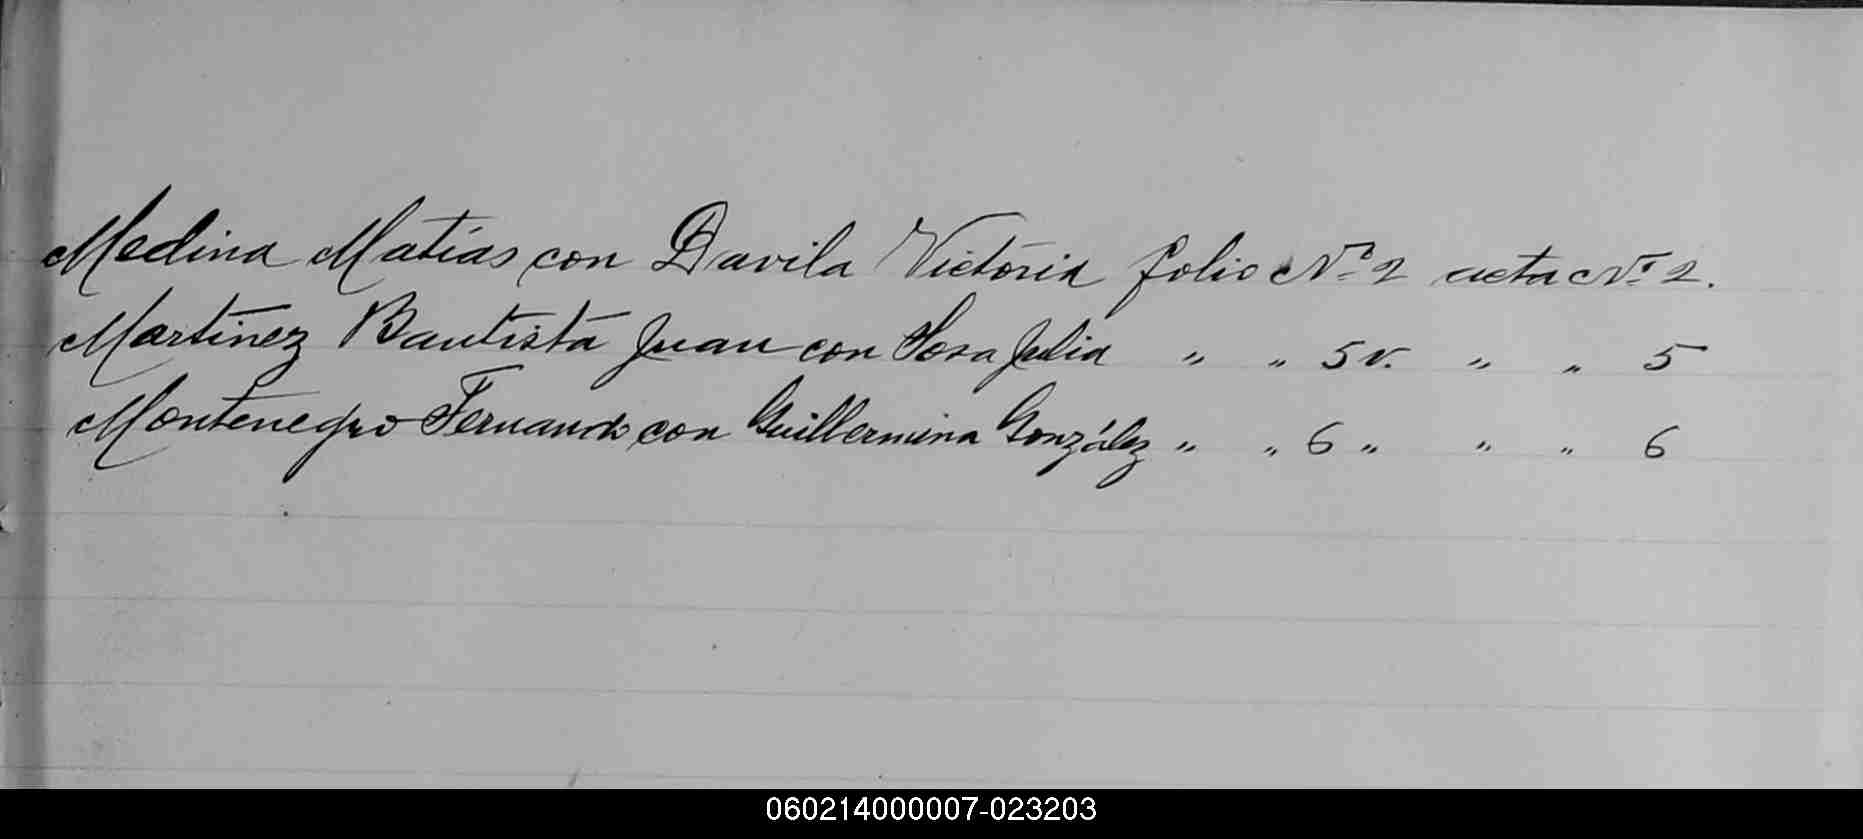 Medina Matías con Davila Victoria folio Nº 2 acta Nº 2.
Martinez Bautista Juan con Sosa Julia " " 5 v. " " 5
Montenegro Fernando con Guillermina González " " 6 " " " 6
060214000007-023203